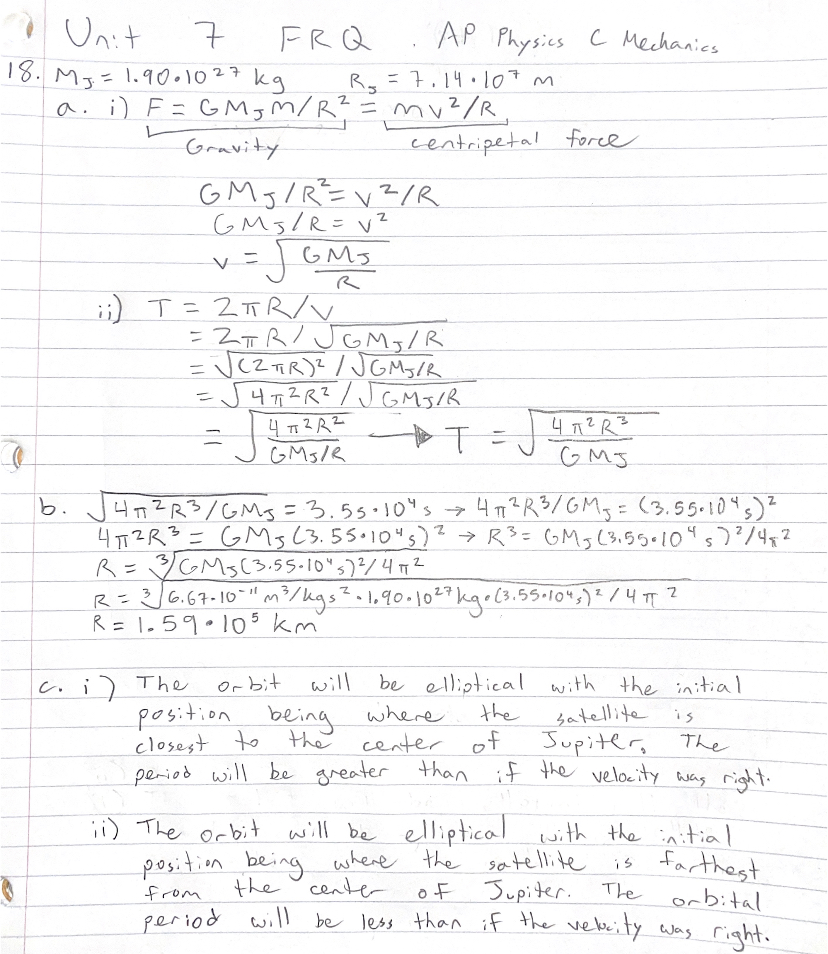 Unit 7 FRQ . AP Physics C Mechanics
18. M_J = 1.90•10^27 kg R_J = 7.14•10^7 m
a. i) F = GM_Jm/R^2 = mv^2/R
Gravity centripetal force
GM_J/R^2 = v^2/R
GM_J/R = v^2
v = √(GM_J/R)
ii) T = 2πR/v
= 2πR/√(GM_J/R)
= √((2πR)^2)/√(GM_J/R)
= √(4π^2R^2)/√(GM_J/R)
= √(4π^2R^2/(GM_J/R)) → T = √(4π^2R^3/GM_J)
b. √(4π^2R^3/GM_J) = 3.55•10^4 s → 4π^2R^3/GM_J = (3.55•10^4 s)^2
4π^2R^3 = GM_J(3.55•10^4 s)^2 → R^3 = GM_J(3.55•10^4 s)^2/4π^2
R = ∛(GM_J(3.55•10^4 s)^2/4π^2)
R = ∛(6.67•10^-11 m^3/kgs^2•1.90•10^27 kg•(3.55•10^4 s)^2/4π^2)
R = 1.59•10^5 km
c. i) The orbit will be elliptical with the initial
position being where the satellite is
closest to the center of Jupiter. The
period will be greater than if the velocity was right.
ii) The orbit will be elliptical with the initial
position being where the satellite is farthest
from the center of Jupiter. The orbital
period will be less than if the velocity was right.